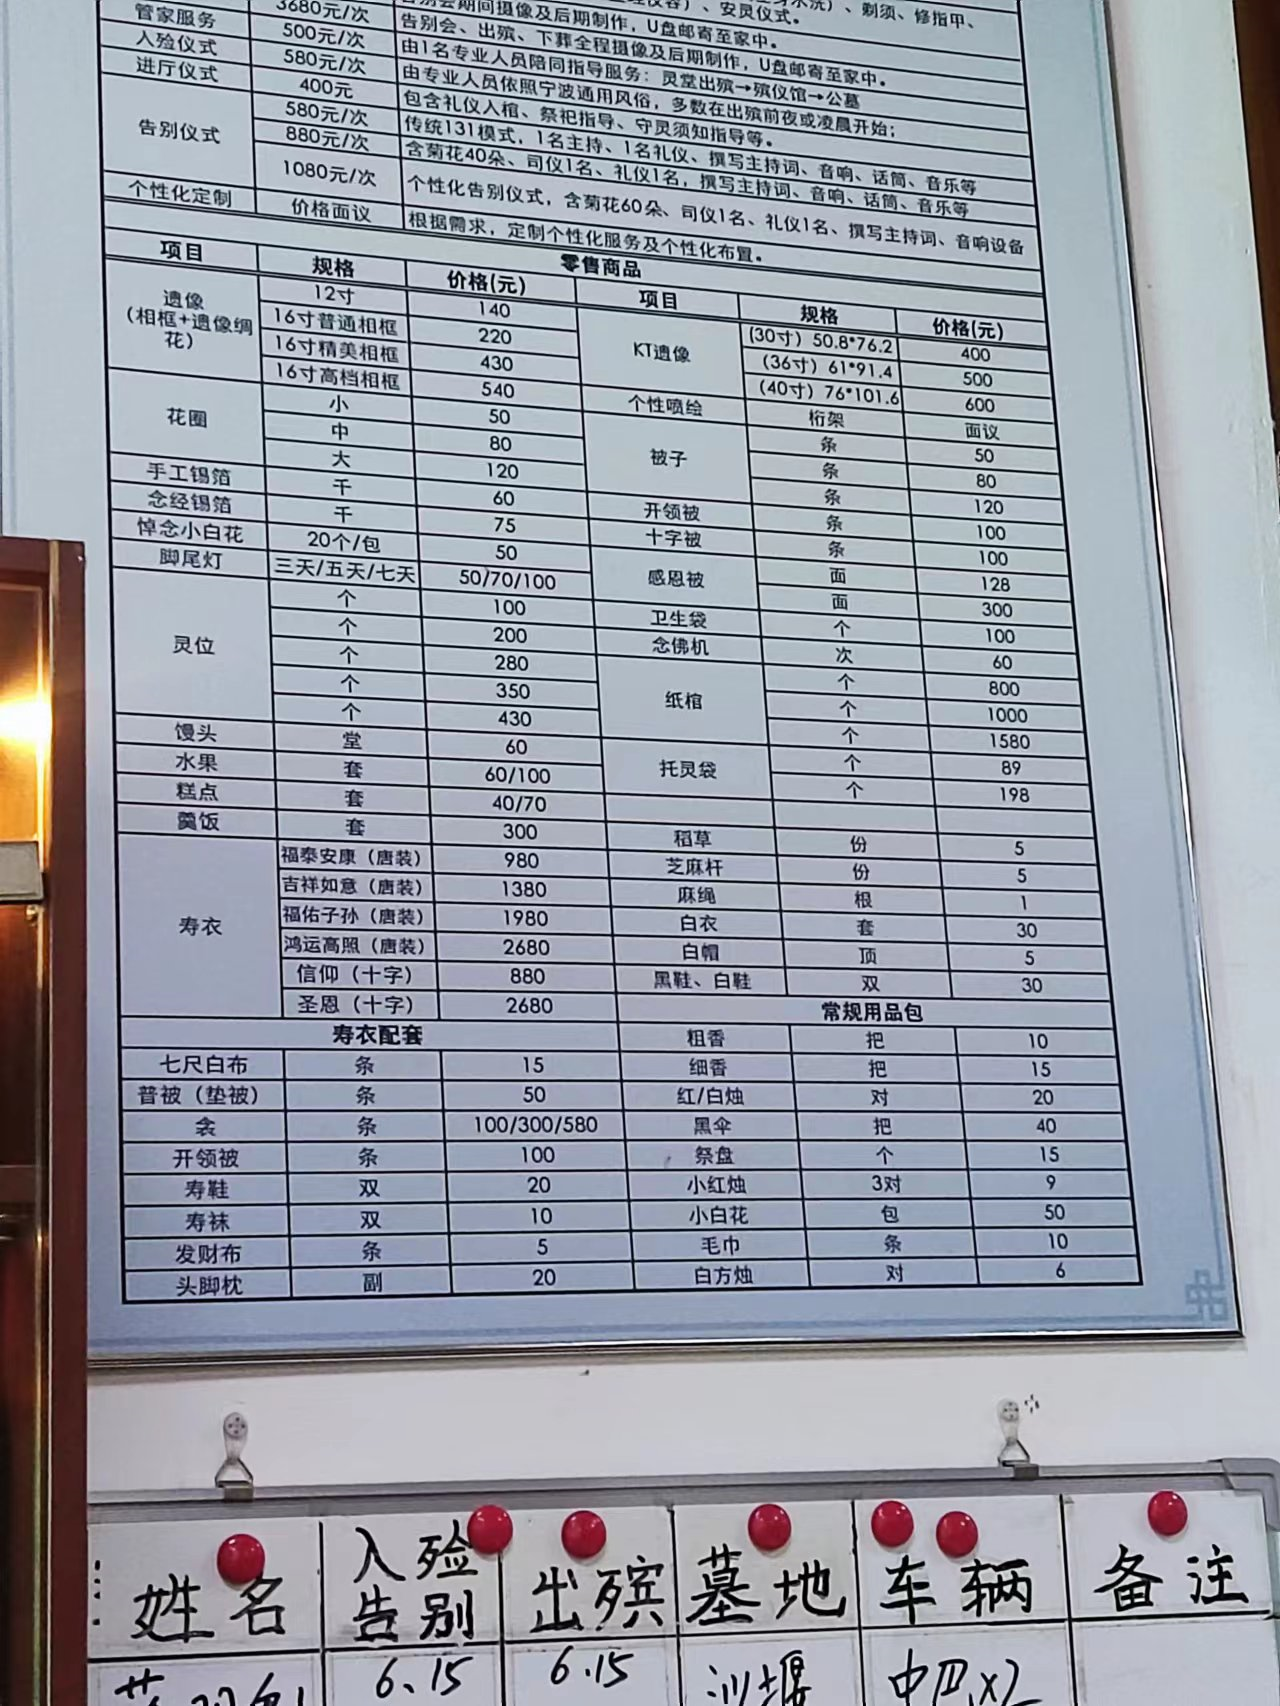 3680元/次
告别会期间摄像及后期制作，U盘邮寄至家中。
管家服务 500元/次 告别会、出殡、下葬全程摄像及后期制作，U盘邮寄至家中。
入殓仪式 580元/次 由1名专业人员陪同指导服务：灵堂出殡→殡仪馆→公墓
进厅仪式 400元 由专业人员依照宁波通用风俗，多数在出殡前夜或凌晨开始；
告别仪式 580元/次 包含礼仪入棺、祭祀指导、守灵须知指导等。
880元/次 传统131模式，1名主持、1名礼仪、撰写主持词、音响、话筒、音乐等
含菊花40朵、司仪1名、礼仪1名，撰写主持词、音响、话筒、音乐等
1080元/次 个性化告别仪式，含菊花60朵、司仪1名、礼仪1名、撰写主持词、音响设备
个性化定制 价格面议 根据需求，定制个性化服务及个性化布置。
零售商品
项目 规格 价格(元) 项目 规格 价格(元)
遗像（相框+遗像绸花） 12寸 140 KT遗像 (30寸) 50.8*76.2 400
16寸普通相框 220 (36寸) 61*91.4 500
16寸精美相框 430 (40寸) 76*101.6 600
16寸高档相框 540 个性喷绘 桁架 面议
花圈 小 50 被子 条 50
中 80 条 80
大 120 条 120
手工锡箔 千 60 开领被 条 100
念经锡箔 千 75 十字被 条 100
悼念小白花 20个/包 50 感恩被 面 128
脚尾灯 三天/五天/七天 50/70/100 面 300
灵位 个 100 卫生袋 个 100
个 200 念佛机 次 60
个 280 纸棺 个 800
个 350 个 1000
个 430 个 1580
馒头 堂 60 托灵袋 个 89
水果 套 60/100 个 198
糕点 套 40/70
羹饭 套 300 稻草 份 5
寿衣 福泰安康（唐装） 980 芝麻杆 份 5
吉祥如意（唐装） 1380 麻绳 根 1
福佑子孙（唐装） 1980 白衣 套 30
鸿运高照（唐装） 2680 白帽 顶 5
信仰（十字） 880 黑鞋、白鞋 双 30
圣恩（十字） 2680 常规用品包
寿衣配套 粗香 把 10
七尺白布 条 15 细香 把 15
普被（垫被） 条 50 红/白烛 对 20
衾 条 100/300/580 黑伞 把 40
开领被 条 100 祭盘 个 15
寿鞋 双 20 小红烛 3对 9
寿袜 双 10 小白花 包 50
发财布 条 5 毛巾 条 10
头脚枕 副 20 白方烛 对 6
姓名 入殓告别 出殡 墓地 车辆 备注
6.15 6.15 中巴x2